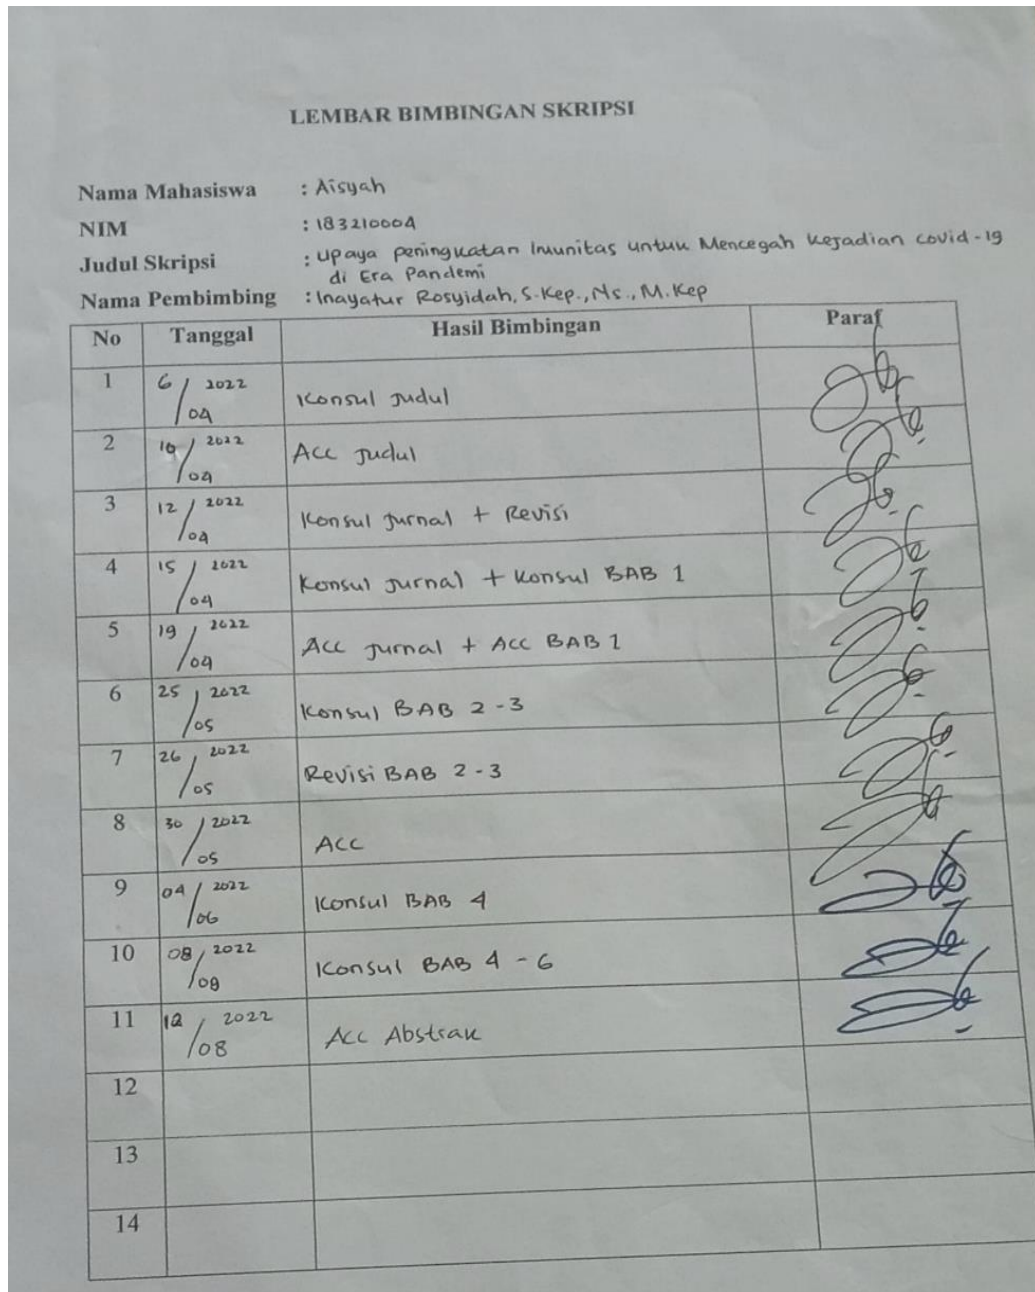 LEMBAR BIMBINGAN SKRIPSI
Nama Mahasiswa : Aisyah
NIM : 183210004
Judul Skripsi : Upaya peningkatan Imunitas untuk Mencegah Kejadian covid-19
di Era Pandemi
Nama Pembimbing : Inayatur Rosyidah, S.Kep., Ns., M.Kep
No Tanggal Hasil Bimbingan Paraf
1 6/04 2022 Konsul Judul
2 10/04 2022 Acc Judul
3 12/04 2022 Konsul Jurnal + Revisi
4 15/04 2022 Konsul Jurnal + Konsul BAB 1
5 19/04 2022 Acc Jurnal + Acc BAB 1
6 25/05 2022 Konsul BAB 2-3
7 26/05 2022 Revisi BAB 2-3
8 30/05 2022 Acc
9 04/06 2022 Konsul BAB 4
10 08/08 2022 Konsul BAB 4-6
11 12/08 2022 Acc Abstrak
12
13
14